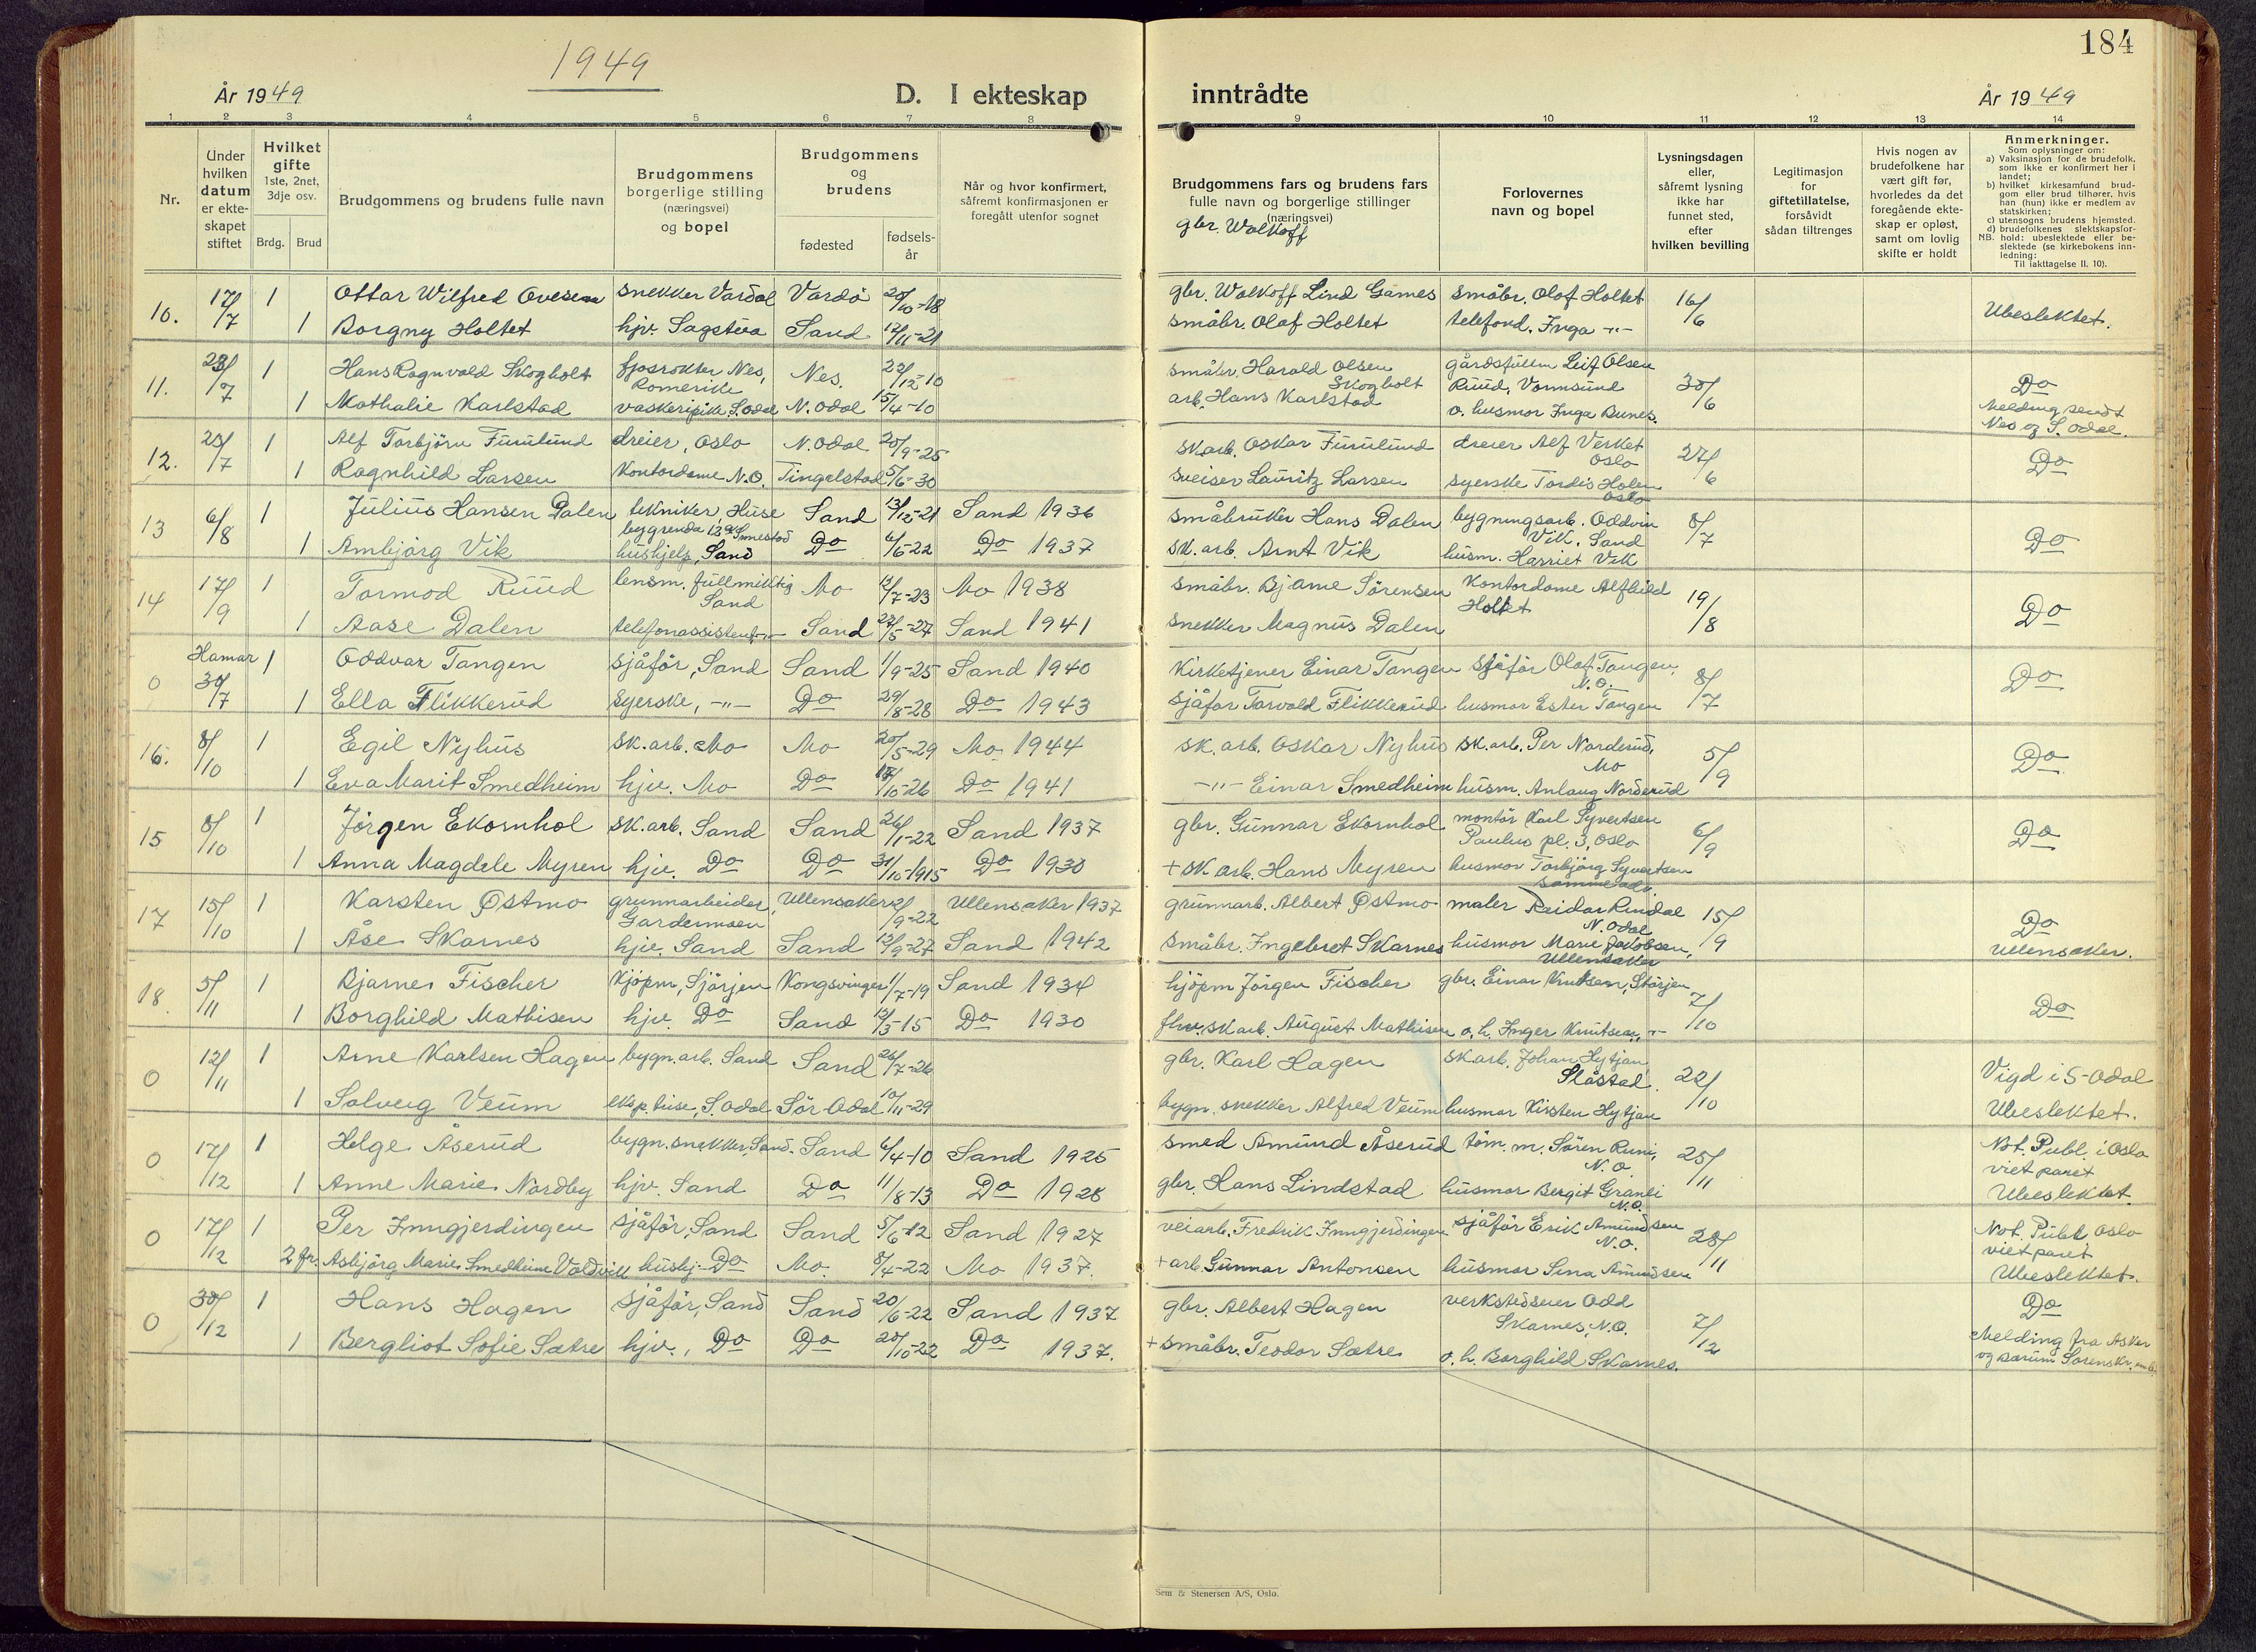 184
1949
År 1949
D. I ekteskap
inntrådte
År 1949
1 2 3 4 5 6 7 8 9 10 11 12 13 14
Nr.
Under hvilken datum er ekteskapet stiftet
Hvilket gifte 1ste, 2net, 3dje osv.
Brdg. Brud
Brudgommens og brudens fulle navn
Brudgommens borgerlige stilling (næringsvei) og bopel
Brudgommens og brudens
fødested
fødsels-år
Når og hvor konfirmert, såfremt konfirmasjonen er foregått utenfor sognet
Brudgommens fars og brudens fars fulle navn og borgerlige stillinger (næringsvei)
gbr. Walkoff
Forlovernes navn og bopel
Lysningsdagen eller, såfremt lysning ikke har funnet sted, efter hvilken bevilling
Legitimasjon for giftetillatelse, forsåvidt sådan tiltrenges
Hvis nogen av brudefolkene har vært gift før, hvorledes da det foregående ekteskap er opløst, samt om lovlig skifte er holdt
Anmerkninger.
Som oplysninger om:
a) Vaksinasjon for de brudefolk, som ikke er konfirmert her i landet;
b) hvilket kirkesamfund brudgom eller brud tilhører, hvis han (hun) ikke er medlem av statskirken;
c) utensogns brudens hjemsted.
d) brudefolkenes slektskapsforhold: ubeslektede eller beslektede (se kirkebokens innledning:
NB.
Til iakttagelse II. 10).
10. 17/7 1 Ottar Wilfred Ovesen snekker Vardal Vardø 20/10-18 gbr. Walkoff Lind Games småbr. Olof Holtet 16/6 Ubeslektet.
1 Borgny Holtet hjv. Sagstua Sand 12/11-21 småbr. Olaf Holtet telefond. Inga -"-
11. 23/7 1 Hans Ragnvald Skogholt fjøsrøkter Nes, Romerike Nes. 22/12-10 småbr. Harald Olsen Skogholt gårdsfullm Leif Olsen Ruud, Vormsund 30/6 Do
1 Mathalie Karlstad vaskeripike, S. Odal N. Odal 15/4-10 arb. Hans Karlstad o. husmor Inga Bunes. Melding sendt Nes og S. Odal.
12. 23/7 1 Alf Torbjörn Furulund dreier, Oslo N. Odal 20/9-25 sk.arb. Oskar Furulund dreier Alf Verket Oslo 27/6 Do
1 Ragnhild Larsen Kontordame N.O. Tingelstad 5/6-30 sveiser Lauritz Larsen syerske Tordis Holen Oslo
13 6/8 1 Julius Hansen Dalen tekniker, Huse Sand 13/12-21 Sand 1936 småbruker Hans Dalen bygningsarb. Oddvin Vik. Sand 8/7 Do
1 Ambjörg Vik hushjelp, Sand Do 6/6-22 Do 1937 sk. arb. Arnt Vik husm. Harriet Vik
14 17/9 1 Tormod Ruud lensm. fullmektig Sand Mo 13/7-23 Mo 1938 småbr. Bjarne Sörensen Kontordame Alfhild Holtet 19/8 Do
1 Aase Dalen telefonassistent -"- Sand 22/5-27 Sand 1941 snekker Magnus Dalen
0 Hamar 30/7 1 Oddvar Tangen sjåför, Sand Sand 1/9-25 Sand 1940 Kirketjener Einar Tangen sjåför Olaf Tangen, N.O. 8/7 Do
1 Ella Flikkerud syerske, -"- Do 29/8-28 Do 1943 sjåför Torvald Flikkerud husmor Ester Tangen
16. 8/10 1 Egil Nyhus sk. arb. Mo Mo 20/5-29 Mo 1944 sk. arb. Oskar Nyhus sk. arb. Per Norderud, Mo 5/9 Do
1 Eva Marit Smedheim hjv. Mo Do 17/10-26 Do 1941 -"- Einar Smedheim husm. Anlaug Norderud
15 8/10 1 Jörgen Ekornhol sk. arb. Sand Sand 26/1-22 Sand 1937 gbr. Gunnar Ekornhol montör Karl Syvertsen Paulus pl. 3, Oslo 6/9 Do
1 Anna Magdele Myren hjv. Do Do 31/10-1915 Do 1930 + sk arb. Hans Myren husmor Torbjörg Syvertsen samme adr.
17 15/10 1 Karsten Østmo grunnarbeider, Gardermoen Ullensaker 2/9-22 Ullensaker 1937 grunnarb. Albert Østmo maler Reidar Rindal N. Odal 15/9 Do
1 Åse Skarnes hjv. Sand Sand 12/9-27 Sand 1942 småbr. Ingebret Skarnes husmor Marie Jakobsen, Ullensaker Ullensaker.
18. 5/11 1 Bjarne Fischer Kjöpm, Sjörjen Kongsvinger 1/7-19 Sand 1934 kjöpm Jörgen Fischer gbr. Einar Knutsen, Störjen 7/10 Do
1 Borghild Mathisen hjv. Do Sand 13/3-15 Do 1930 fhv. sk arb. August Mathisen o. h. Inger Knutsen, -"-
0 12/11 1 Arne Karlsen Hagen bygn. arb. Sand Sand 26/7-26 gbr. Karl Hagen sk arb. Johan Hytjan Slåstad. 22/10 Vigd i S-Odal
1 Solveig Veum eksp. Huse, S. Odal Sör Odal 10/11-29 bygn. snekker Alfred Veum husmor Kirsten Hytjan Ubeslektet.
0 17/12 1 Helge Åserud bygn. snekker, Sand. Sand 6/4-10 Sand 1925 smed Amund Åserud töm. m. Sören Runi, N.O. 25/11 Not. Publ. i Oslo viet paret
1 Anne Marie Nordby hjv. Sand Do 11/8-13 Do 1928 gbr. Hans Lindstad husmor Bergit Granli N.O. Ubeslektet.
0 17/12 1 Per Inngjerdingen sjåför, Sand Sand 5/6-12 Sand 1927 veiarb. Fredrik Inngjerdingen sjåför Erik Amundsen N.O. 28/11 Not. Publ Oslo viet paret
2 fr. Asbjörg Marie Smedheim Voldvik hushj. Do Mo. 8/4-22 Mo 1937. + arb. Gunnar Antonsen husmor Lina Amundsen Ubeslektet.
0 30/12 1 Hans Hagen sjåför, Sand Sand 20/6-22 Sand 1937 gbr. Albert Hagen verkstedseier Odd Skarnes, N.O. 7/12 Do
1 Bergliot Sofie Sætre hjv., Do Do 20/10-22 Do 1937. + småbr. Teodor Sætre o. h. Borghild Skarnes. Melding fra Asker og Bærum Sorenskr.
Sem & Stenersen A/S, Oslo.